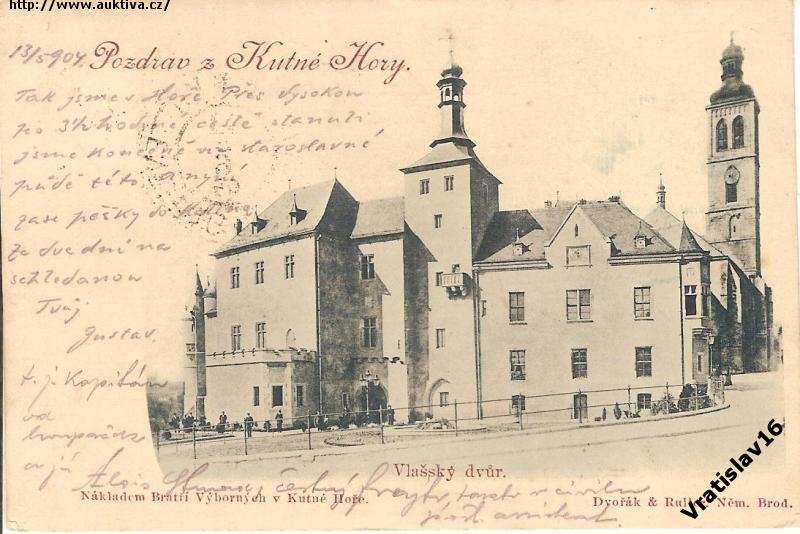 http://www.auktiva.cz/
13/5 904.
Pozdrav z Kutné Hory.
Tak jsme v Hoře. Přes Vysokou
po 3½ hodinné cestě stanuli
jsme konečně na staroslavné
půdě této. A nyní
zase pěšky do Kolína
Za dva dni na
schledanou
Tvůj
Gustav.
t. j. Kapitán
od
a já Alois
Vlašský dvůr.
Nákladem Bratří Výborných v Kutné Hoře.
Dvořák & Něm. Brod.
v civilu
assistent
Vratislav16